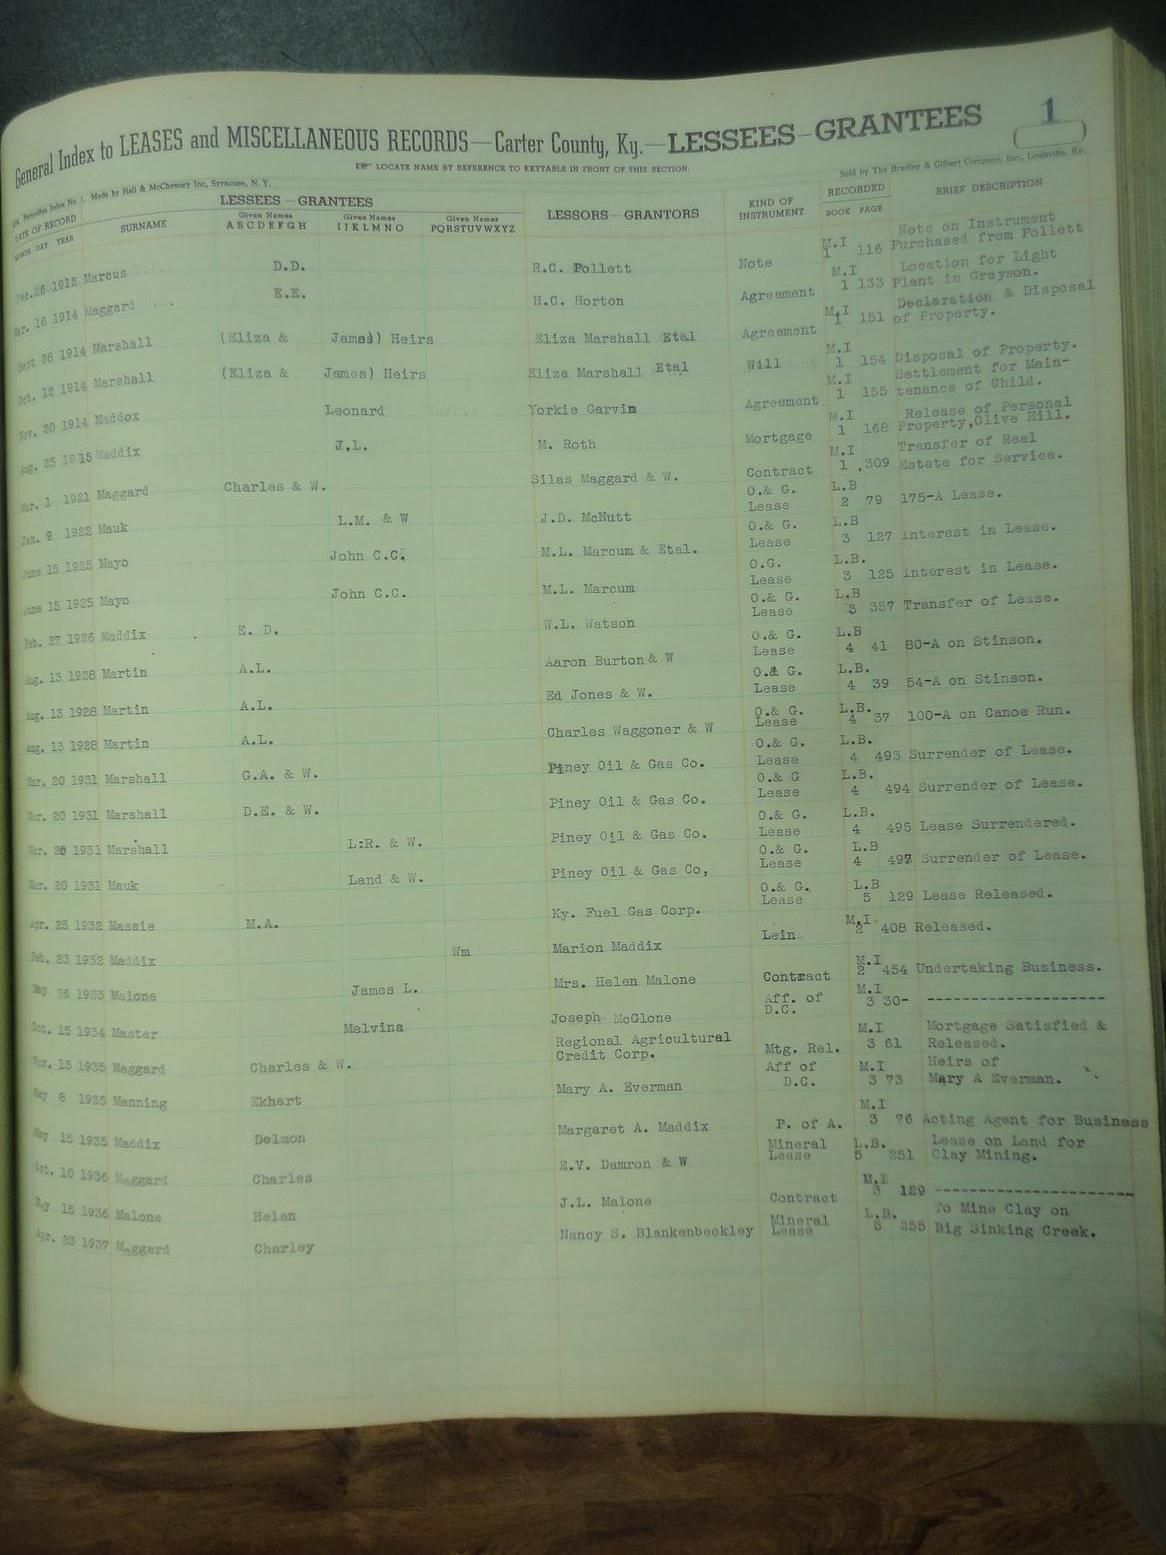 General Index to LEASES and MISCELLANEOUS RECORDS—Carter County, Ky.—LESSEES—GRANTEES 1
LOCATE NAME BY REFERENCE TO KEYTABLE IN FRONT OF THIS SECTION.
Index No. 1. Made by Hall & McChesney Inc, Syracuse, N. Y. Sold by The Bradley & Gilbert Company, Inc., Louisville, Ky.
DATE OF RECORD LESSEES—GRANTEES LESSORS—GRANTORS KIND OF INSTRUMENT RECORDED BRIEF DESCRIPTION
MONTH DAY YEAR SURNAME Given Names ABCDEFGH Given Names IJKLMNO Given Names PQRSTUVWXYZ BOOK PAGE
Dec. 26 1912 Marcus D.D. R.C. Pollett Note M.I 1 116 Note on Instrument Purchased from Pollett
Mar. 16 1914 Maggard E.E. H.C. Horton Agreement M.I 1 133 Location for Light Plant in Grayson.
Sept. 28 1914 Marshall (Eliza & James) Heirs Eliza Marshall Etal Agreement M.I 1 151 Declaration & Disposal of Property.
Oct. 12 1914 Marshall (Eliza & James) Heirs Eliza Marshall Etal Will M.I 1 154 Disposal of Property.
Nov. 20 1914 Maddox Leonard Yorkie Garvin Agreement M.I 1 155 Settlement for Main- tenance of Child.
Aug. 25 1915 Maddix J.L. M. Roth Mortgage M.I 1 168 Release of Personal Property,Olive Hill.
Mar. 1 1921 Maggard Charles & W. Silas Maggard & W. Contract M.I 1 309 Transfer of Real Estate for Service.
Jan. 9 1922 Mauk L.M. & W J.D. McNutt O.& G. Lease L.B 2 79 175-A Lease.
June 15 1925 Mayo John C.C. M.L. Marcum & Etal. O.& G. Lease L.B 3 127 Interest in Lease.
June 15 1925 Mayo John C.C. M.L. Marcum O.G. Lease L.B. 3 125 Interest in Lease.
Feb. 27 1926 Maddix E. D. W.L. Watson O.& G. Lease L.B 3 357 Transfer of Lease.
Aug. 13 1928 Martin A.L. Aaron Burton & W O.& G. Lease L.B 4 41 80-A on Stinson.
Aug. 13 1928 Martin A.L. Ed Jones & W. O.& G. Lease L.B. 4 39 54-A on Stinson.
Aug. 13 1928 Martin A.L. Charles Waggoner & W O.& G. Lease L.B. 4 37 100-A on Canoe Run.
Mar. 20 1931 Marshall G.A. & W. Piney Oil & Gas Co. O.& G. Lease L.B. 4 493 Surrender of Lease.
Mar. 20 1931 Marshall D.E. & W. Piney Oil & Gas Co. O.& G Lease L.B. 4 494 Surrender of Lease.
Mar. 20 1931 Marshall L:R. & W. Piney Oil & Gas Co. O.& G. Lease L.B. 4 495 Lease Surrendered.
Mar. 20 1931 Mauk Land & W. Piney Oil & Gas Co, O.& G. Lease L.B 4 497 Surrender of Lease.
Apr. 25 1932 Massie M.A. Ky. Fuel Gas Corp. O.& G. Lease L.B 5 129 Lease Released.
Feb. 23 1932 Maddix Wm Marion Maddix Lein M.I. 2 408 Released.
May 26 1933 Malone James L. Mrs. Helen Malone Contract M.I 2 454 Undertaking Business.
Oct. 15 1934 Master Melvina Joseph McGlone Aff. of D.C. M.I 3 30- --------------------
Mar. 13 1935 Maggard Charles & W. Regional Agricultural Credit Corp. Mtg. Rel. M.I 3 61 Mortgage Satisfied & Released.
May 8 1935 Manning Ekhart Mary A. Everman Aff of D.C. M.I 3 73 Heirs of Mary A Everman.
May 15 1935 Maddix Delmon Margaret A. Maddix P. of A. M.I 3 76 Acting Agent for Business
Oct. 10 1936 Maggard Charles E.V. Damron & W Mineral Lease L.B. 5 251 Lease on Land for Clay Mining.
May 15 1936 Malone Helen J.L. Malone Contract M.I 3 129 ----------------------
Apr. 23 1937 Maggard Charley Nancy S. Blankenbeckley Mineral Lease L.B. 5 255 To Mine Clay on Big Sinking Creek.